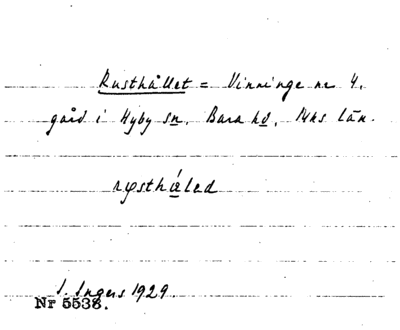 Rusthållet = Vinninge nr 4.
gård i Hyby sn. Bara hd, Mhs län.
rɷsthǽled
I. Ingers 1929.
Nr 5538.